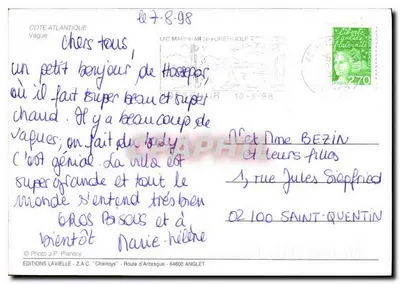 le 7-8-98
COTE ATLANTIQUE
Vague
Chers tous,
un petit bonjour de Hossegor,
où il fait super beau et super
chaud. Il y a beaucoup de
vagues, on fait du body,
c'est génial. La villa est
super grande et tout le
monde s'entend très bien
GROS BISOUS et à
bientôt Marie-Hélène
© Photo J.P. Plantey
EDITIONS LAVIELLE - Z.A.C. "Chixitoys" - Route d'Artesgue - 64600 ANGLET
10-8-98
2,70
Mr et Mme BEZIN
et leurs filles
1, rue Jules Siegfried
02100 SAINT-QUENTIN